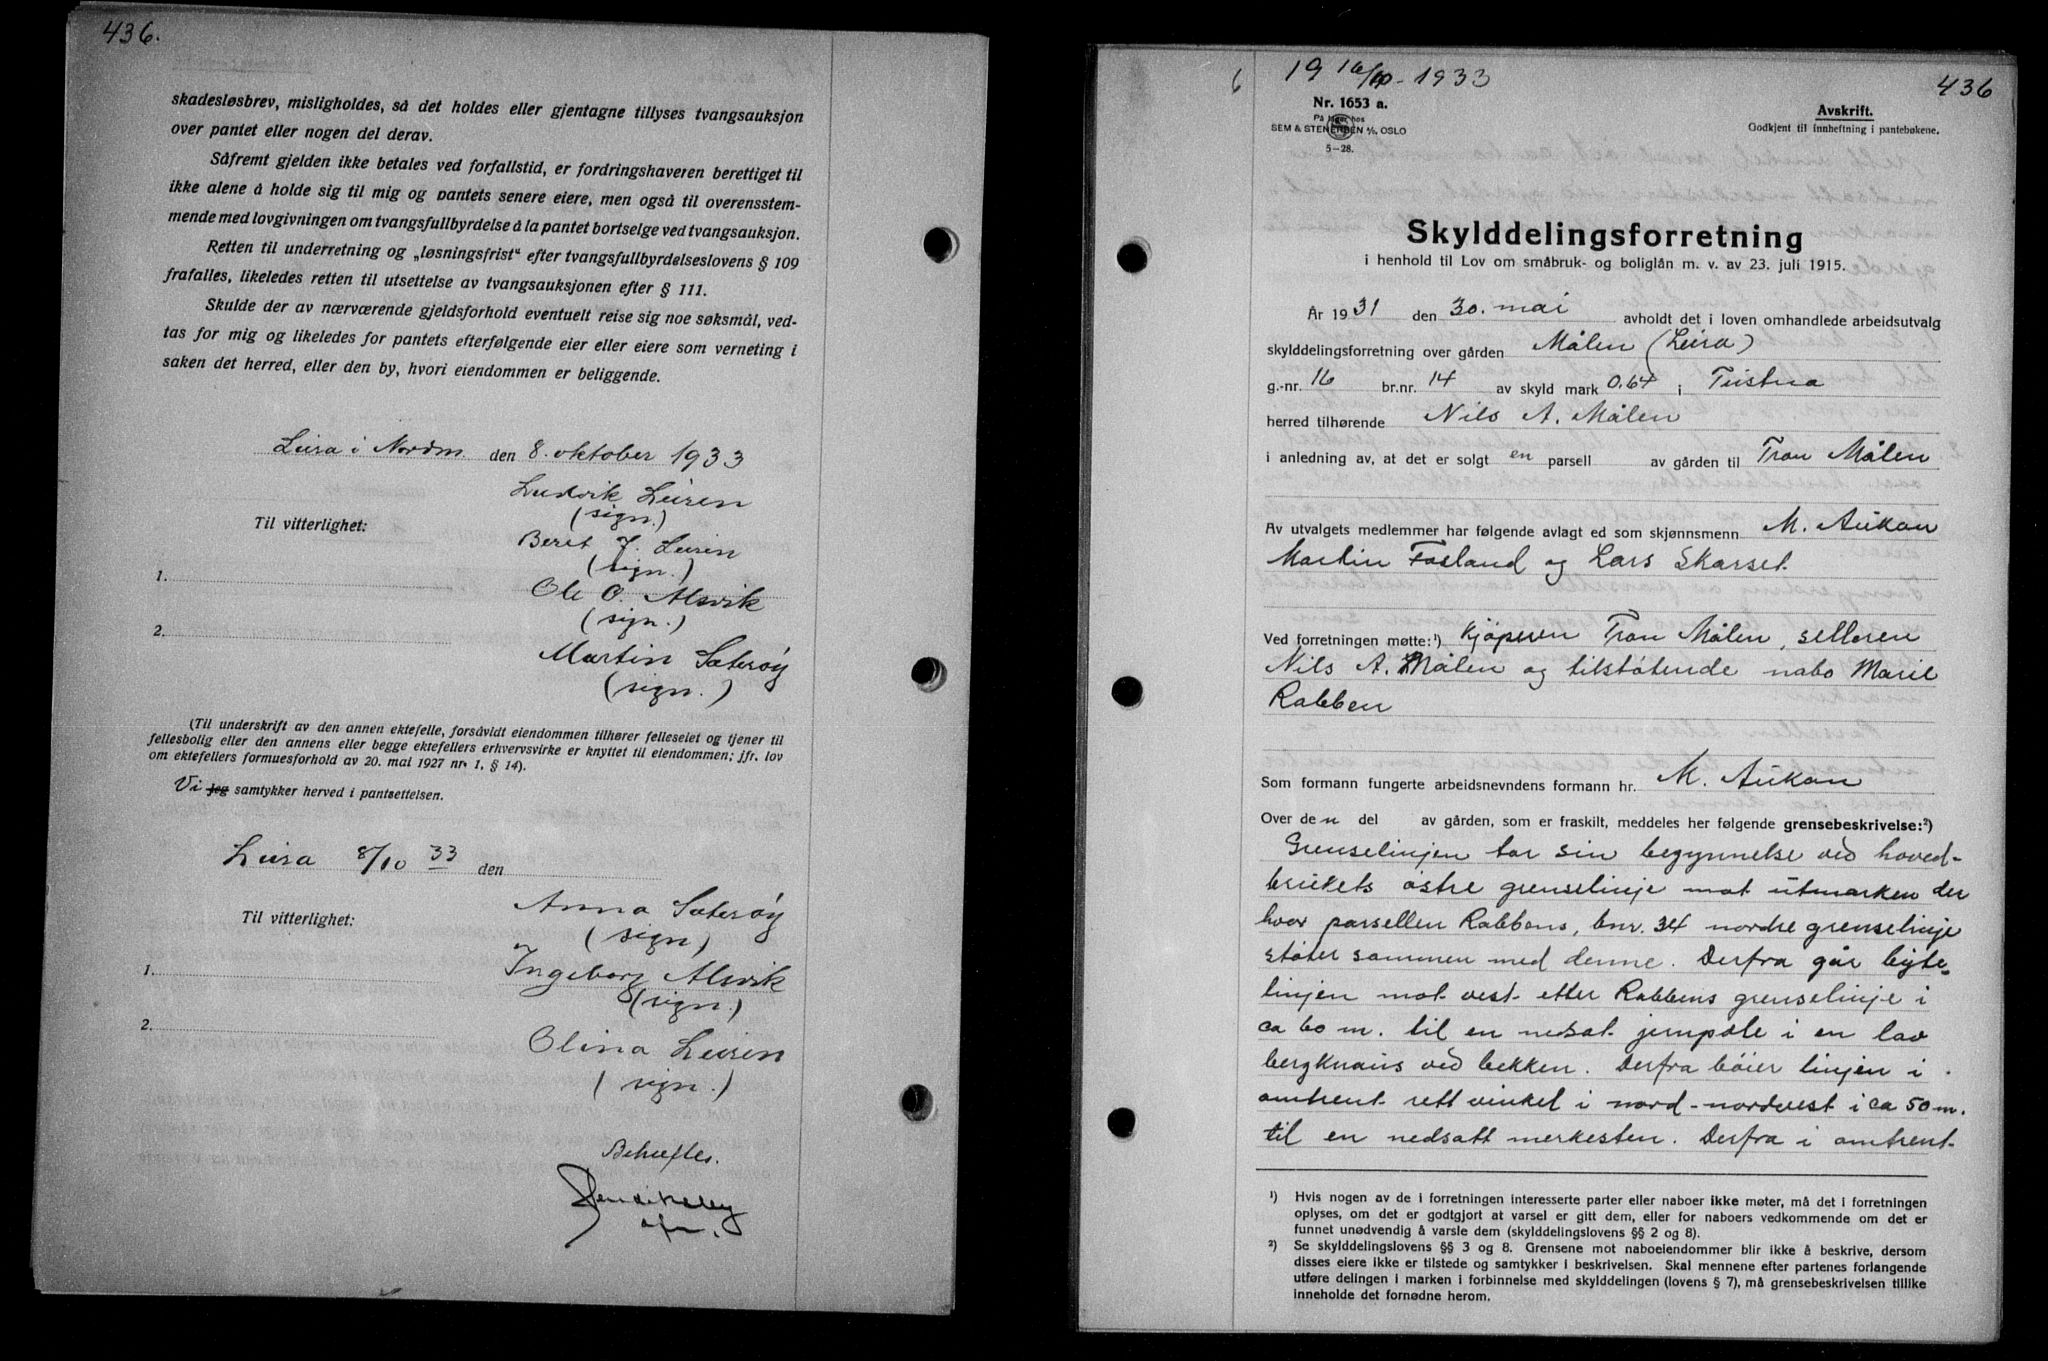 436.
skadesløsbrev, misligholdes, så det holdes eller gjentagne tillyses tvangsauksjon
over pantet eller nogen del derav.
Såfremt gjelden ikke betales ved forfallstid, er fordringshaveren berettiget til
ikke alene å holde sig til mig og pantets senere eiere, men også til overensstem-
mende med lovgivningen om tvangsfullbyrdelse å la pantet bortselge ved tvangsauksjon.
Retten til underretning og „løsningsfrist" efter tvangsfullbyrdelseslovens § 109
frafalles, likeledes retten til utsettelse av tvangsauksjonen efter § 111.
Skulde der av nærværende gjeldsforhold eventuelt reise sig noe søksmål, ved-
tas for mig og likeledes for pantets efterfølgende eier eller eiere som verneting i
saken det herred, eller den by, hvori eiendommen er beliggende.
Leira i Nordm. den 8. oktober 1933
Ludvik Leiren
(sign.)
Til vitterlighet:
Beret J. Leiren
(sign.)
1.
Ole O. Alsvik
(sign.)
2.
Martin Sæterøy
(sign.)
(Til underskrift av den annen ektefelle, forsåvidt eiendommen tilhører felleseiet og tjener til
fellesbolig eller den annens eller begge ektefellers erhvervsvirke er knyttet til eiendommen; jfr. lov
om ektefellers formuesforhold av 20. mai 1927 nr. 1, § 14).
Vi jeg samtykker herved i pantsettelsen.
Leira 8/10 33 den
Anna Sæterøy
Til vitterlighet:
(sign)
1.
Ingeborg Alsvik
(sign.)
2.
Olina Leiren
(sign.)
Bekreftes.
436
19 16/10-1933
Nr. 1653 a.
På lager hos
SEM & STENERSEN A/S, OSLO
5-28.
Avskrift.
Godkjent til innheftning i pantebøkene.
Skylddelingsforretning
i henhold til Lov om småbruk- og boliglån m. v. av 23. juli 1915.
År 1931 den 30. mai avholdt det i loven omhandlede arbeidsutvalg
skylddelingsforretning over gården Målen (Leira)
g.-nr. 16 br.nr. 14 av skyld mark 0.64 i Tustna
herred tilhørende Nils A. Målen
i anledning av, at det er solgt en parsell av gården til Tron Målen
Av utvalgets medlemmer har følgende avlagt ed som skjønnsmenn M. Aukan
Martin Fosland og Lars Skarset.
Ved forretningen møtte:¹) Kjøperen Tron Målen, selleren
Nils A. Målen og tilstøtende nabo Marit
Rabben
Som formann fungerte arbeidsnevndens formann hr. M. Aukan
Over den del av gården, som er fraskilt, meddeles her følgende grensebeskrivelse:²)
Grenselinjen tar sin begynnelse ved hoved-
brukets østre grenselinje mot utmarken der
hvor parsellen Rabbens, bnr. 34 nordre grenselinje
støter sammen med denne. Derfra går byte-
linjen mot vest etter Rabbens grenselinje i
ca 60 m. til en nedsat jernpåle i en lav
bergknaus ved bekken. Derfra bøier linjen i
omtrent rett vinkel i nord-nordvest i ca 50 m.
til en nedsatt merkesten. Derfra i omtrent
¹) Hvis nogen av de i forretningen interesserte parter eller naboer ikke møter, må det i forretningen
oplyses, om det er godtgjort at varsel er gitt dem, eller for naboers vedkommende om det er
funnet unødvendig å varsle dem (skylddelingslovens §§ 2 og 8).
²) Se skylddelingslovens §§ 3 og 8. Grensene mot naboeiendommer blir ikke å beskrive, dersom
disses eiere ikke er tilstede og samtykker i beskrivelsen. Skal mennene efter partenes forlangende
utføre delingen i marken i forbinnelse med skylddelingen (lovens § 7), må grensebeskrivelsen tillike
inneholde det fornødne herom.